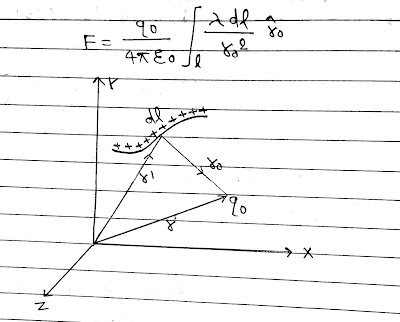 F = q0 / 4πε0 ∫l λ dl / r0² r̂0
Y
dl
+++++++++++
r0
r'
q0
r
X
Z